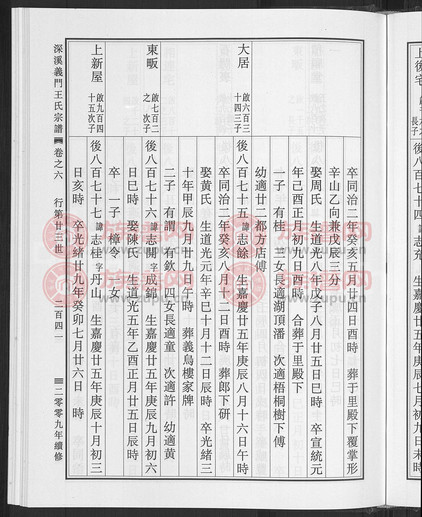 卒同治二年癸亥五月廿四日酉時　葬于里殿下覆掌形
辛山乙向兼戊辰三分
娶周氏　生道光八年戊子八月廿五日巳時　卒宣統元
年己酉正月初九日酉時　合葬于里殿下
一子　有桂　三女長適湖頂潘　次適梧桐樹下傅
幼適廿二都方店傅
大居　啟六百三十四三子　後八百七十五　諱志餘　生嘉慶廿五年庚辰八月十六日午時
卒同治二年癸亥八月十二日酉時　葬郎下研
娶黄氏　生道光元年辛巳十月十二日辰時　卒光緒三
十年甲辰九月廿九日午時　葬義烏樓家牌
二子　有謂　有欽　四女長適童　次適許　幼適黄
東畈　啟七百二之次子　後八百七十六　諱志開　字成錦　生嘉慶廿五年庚辰九月初六
日巳時　娶陳氏　生道光五年乙酉正月廿五日辰時
卒　一子　樟令　一女
上新屋　啟九百四十五次子　後八百七十七　諱志桂　字丹山　生嘉慶廿五年庚辰十月初三
日亥時　卒光緒廿九年癸卯七月廿六日　時
深溪義門王氏宗譜　卷之六　行第廿三世　二百四一　二零零九年續修
上後宅
長子
後八百七十四　諱志充　生嘉慶廿五年庚辰七月初九日未時